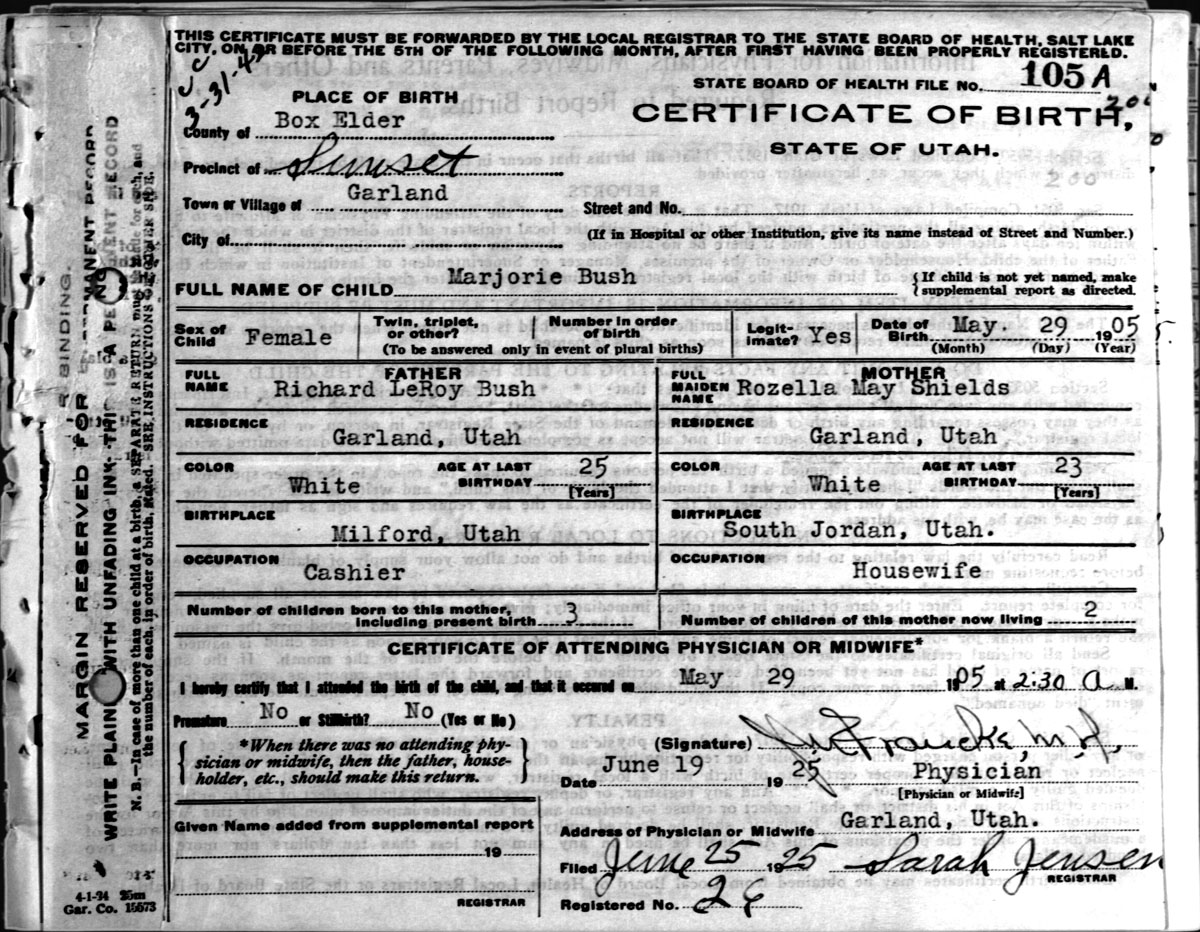 THIS CERTIFICATE MUST BE FORWARDED BY THE LOCAL REGISTRAR TO THE STATE BOARD OF HEALTH, SALT LAKE
CITY, ON OR BEFORE THE 5TH OF THE FOLLOWING MONTH, AFTER FIRST HAVING BEEN PROPERLY REGISTERED.
STATE BOARD OF HEALTH FILE No. 105 A
PLACE OF BIRTH
CERTIFICATE OF BIRTH,
STATE OF UTAH.
200
County of Box Elder
Precinct of Sunset
Town or Village of Garland
Street and No.
City of
(If in Hospital or other Institution, give its name instead of Street and Number.)
FULL NAME OF CHILD Marjorie Bush
{If child is not yet named, make
supplemental report as directed.
Sex of Child Female
Twin, triplet, or other?
Number in order of birth
(To be answered only in event of plural births)
Legit-imate? Yes
Date of Birth May. 29 1905
(Month) (Day) (Year)
FATHER
FULL NAME Richard LeRoy Bush
RESIDENCE
Garland, Utah
COLOR White
AGE AT LAST BIRTHDAY 25
[Years]
BIRTHPLACE
Milford, Utah
OCCUPATION
Cashier
MOTHER
FULL MAIDEN NAME Rozella May Shields
RESIDENCE
Garland, Utah
COLOR White
AGE AT LAST BIRTHDAY 23
[Years]
BIRTHPLACE
South Jordan, Utah.
OCCUPATION
Housewife
Number of children born to this mother,
including present birth 3
Number of children of this mother now living 2
CERTIFICATE OF ATTENDING PHYSICIAN OR MIDWIFE*
I hereby certify that I attended the birth of the child, and that it occured on May 29 1905 at 2:30 a. M.
Premature No or Stillbirth? No (Yes or No)
{*When there was no attending phy-
sician or midwife, then the father, house-
holder, etc., should make this return.}
(Signature) Francke, M.D.
Date June 19 1925 Physician
[Physician or Midwife]
Given Name added from supplemental report
19
REGISTRAR
Address of Physician or Midwife Garland, Utah.
Filed June 25 1925 Sarah Jensen
REGISTRAR
Registered No. 26
MARGIN RESERVED FOR BINDING.
WRITE PLAINLY WITH UNFADING INK—THIS IS A PERMANENT RECORD
N. B.—In case of more than one child at a birth, a SEPARATE RETURN must be made for each, and
the number of each, in order of birth, stated. SEE INSTRUCTIONS ON OTHER SIDE.
4-1-24 25m
Gar. Co. 15573